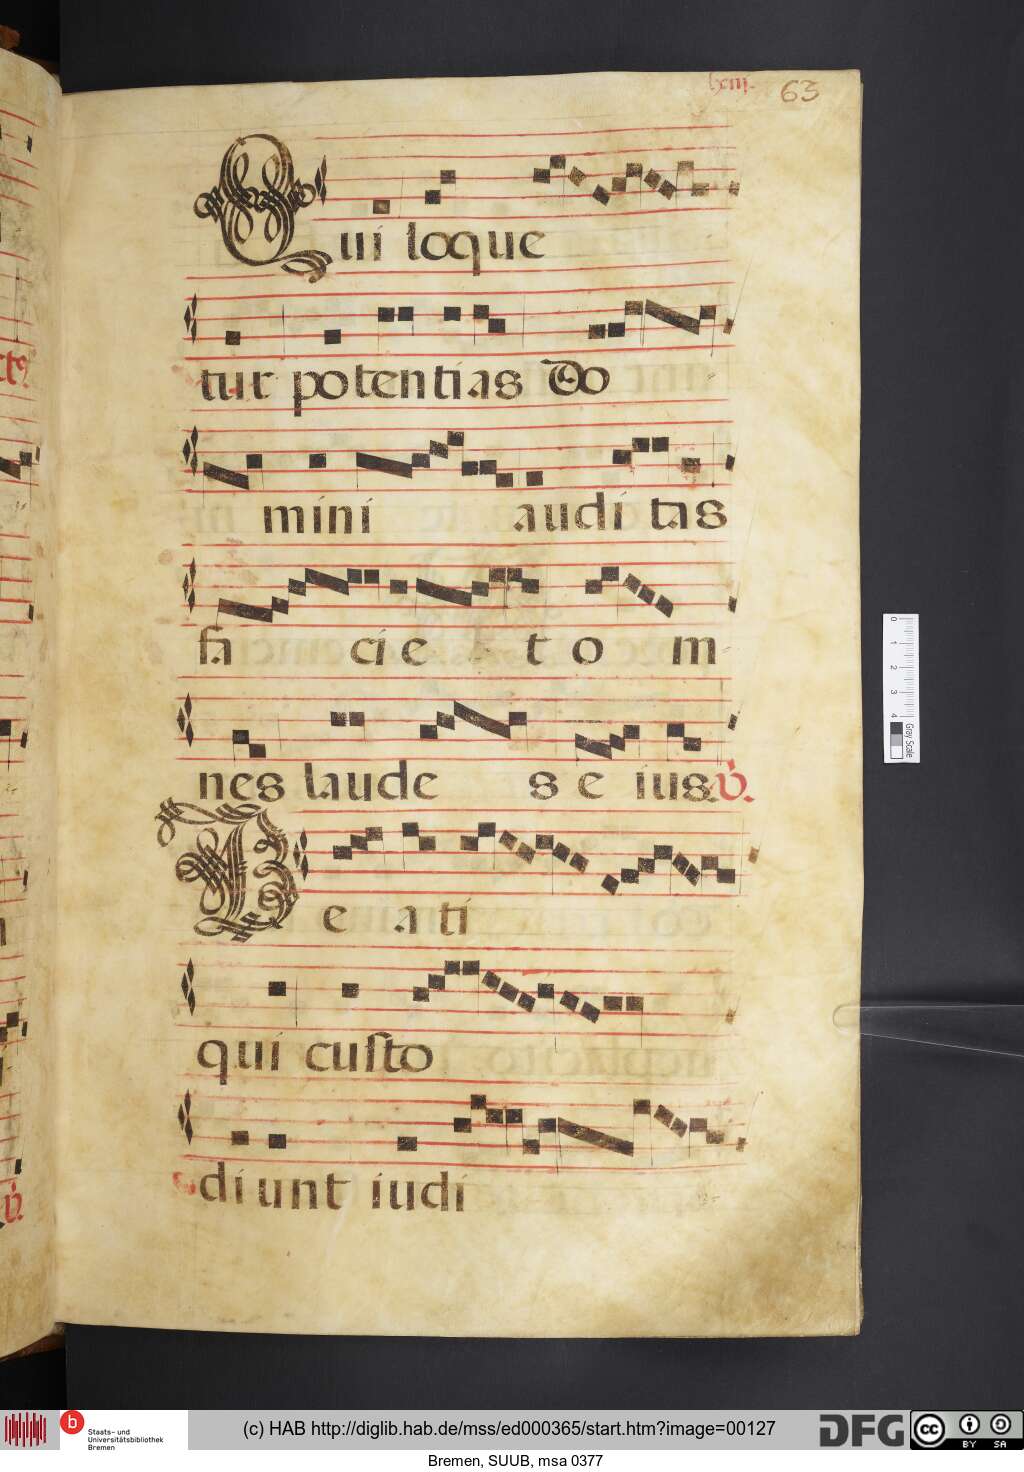 lxiij. 63
Qui loque
tur potentias Do
mini audi tas
fa cie t o m
nes laude s e ius. V.
Be ati
qui custo
di unt iudi
0 1 2 3 4
Gray Scale
Staats- und
Universitätsbibliothek
Bremen
(c) HAB http://diglib.hab.de/mss/ed000365/start.htm?image=00127
DFG
cc BY SA
Bremen, SUUB, msa 0377